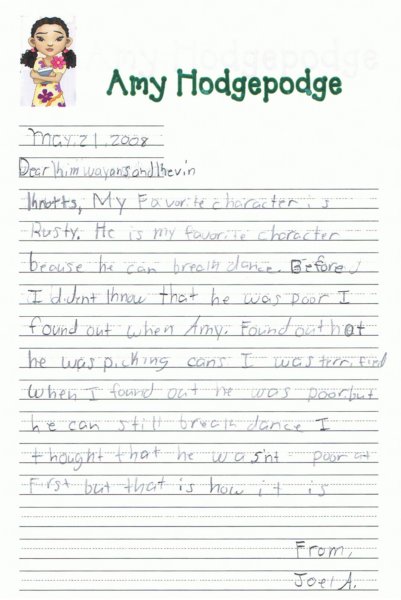 Amy Hodgepodge
May, 21, 2008
Dear khim wayans and khevin
khnotts, My Favorite character is
Rusty. He is my favorite character
beause he can breath dance. Before
I didnt khnow that he was poor I
found out when Amy. Found out hot
he was piching cans I was terrified
when I found out he was poor. but
he can still breath dance I
thought that he wasnt poor at
First but that is how it is
From,
Joel A.